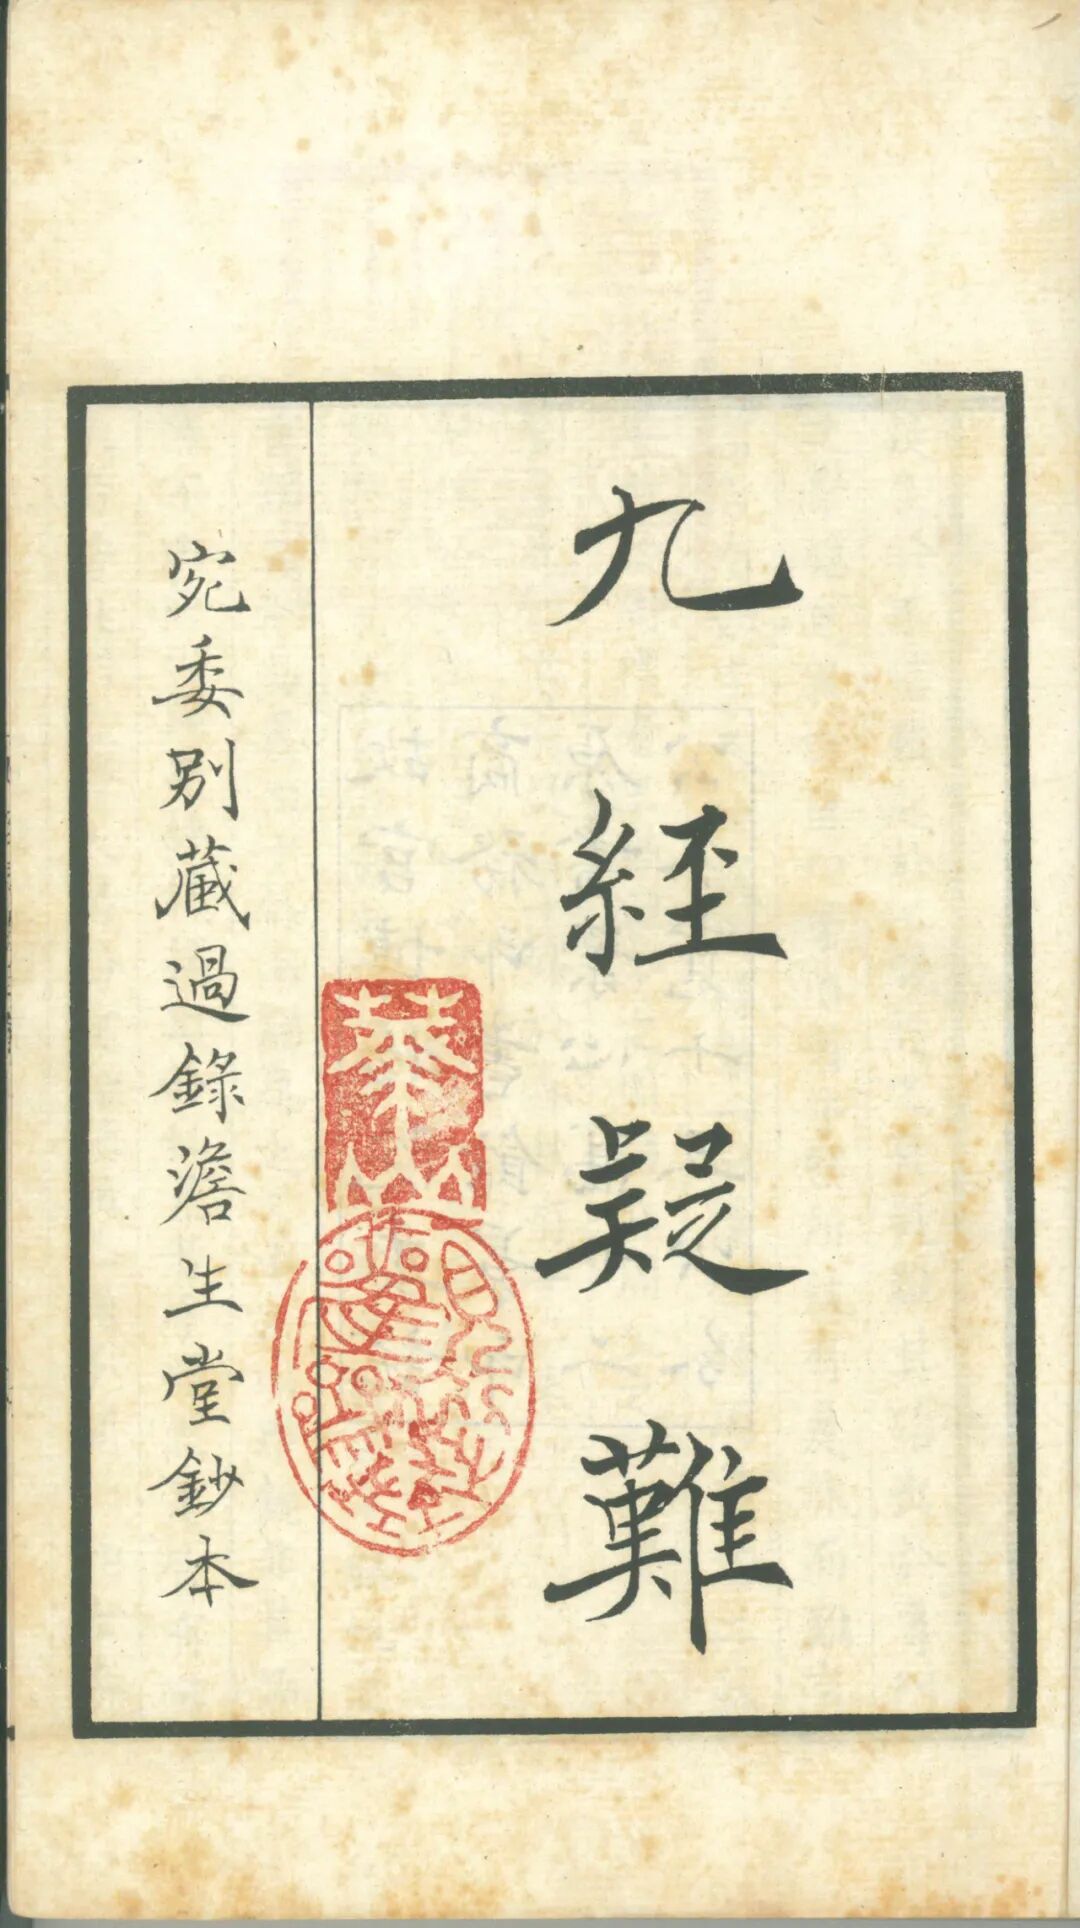 九經疑難
宛委別藏過錄澹生堂鈔本